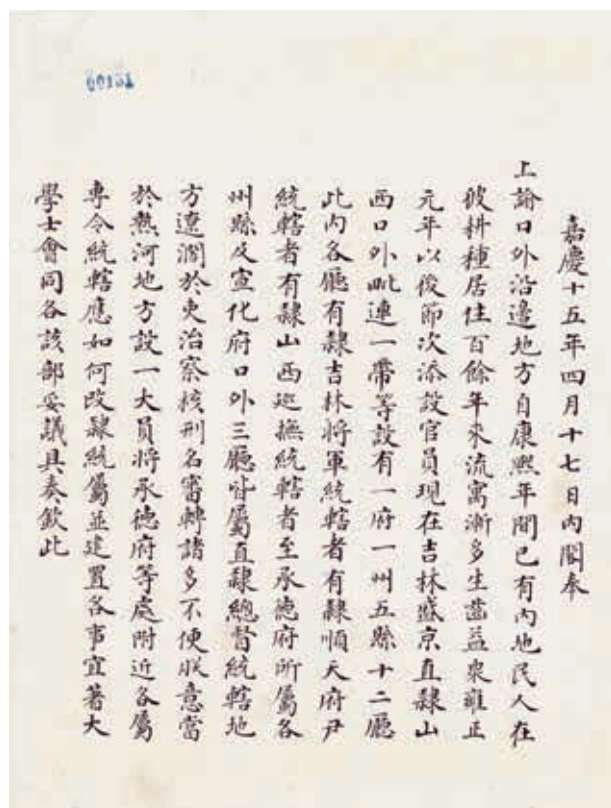 00151
嘉慶十五年四月十七日內閣奉
上諭口外沿邊地方自康熙年間已有內地民人在
彼耕種居住百餘年來流寓漸多生齒益衆雍正
元年以後節次添設官員現在吉林盛京直隸山
西口外毗連一帶等設有一府一州五縣十二廳
此內各廳有隸吉林將軍統轄者有隸順天府尹
統轄者有隸山西巡撫統轄者至承德府所屬各
州縣及宣化府口外三廳皆屬直隸總督統轄地
方遼濶於吏治察核刑名審轉諸多不便朕意當
於熱河地方設一大員將承德府等處附近各屬
專令統轄應如何改隸統屬並建置各事宜著大
學士會同各該部妥議具奏欽此